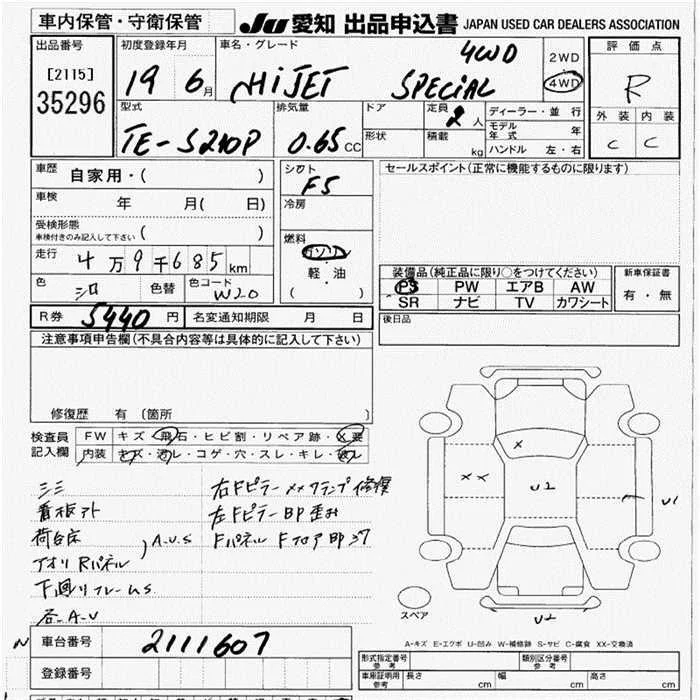 車内保管・守衛保管
JU 愛知 出品申込書 JAPAN USED CAR DEALERS ASSOCIATION
出品番号
[2115]
35296
初度登録年月
19 6月
車名・グレード
HiJET SPECiAL 4WD
2WD
4WD
評価点
R
外装 内装
C C
型式
TE-S210P
排気量
0.65 CC
ドア
形状
定員
2人
積載
kg
ディーラー・並行
モデル年式 年
ハンドル 左・右
車歴
自家用・( )
車検
年 月( 日)
受検形態
車検付きのみ記入して下さい ( )
走行
4万9千685km
色
シロ
色替
色コード
W20
シフト
F5
冷房
燃料
ガソリン
軽・油
( )
セールスポイント(正常に機能するものに限ります)
装備品(純正品に限り○をつけてください)
PS PW エアB AW
SR ナビ TV カワシート
新車保証書
有・無
R券 5440円
名変通知期限 月 日
後日品
注意事項申告欄(不具合内容等は具体的に記入して下さい)
修復歴 有 〔箇所 〕
検査員
記入欄
FW キズ・飛石・ヒビ割・リペア跡・X要
内装 キズ・汚レ・コゲ・穴・スレ・キレ・破レ
ミミ
看板アト
荷台床
アオリ Rパネル
A.U.S
下廻りフレームS
各A-U
右Fピラー メメクランプ修復
左Fピラー BP歪み
Fパネル Fフロア
X
X X
U2
U1
U2
スペア
A-キズ E-エクボ U-凹み W-補修跡 S-サビ C-腐食 XX-交換済
N
車台番号
2111607
登録番号
形式指定番号
参考
類別区分番号
参考
車庫証明用
参考
長さ cm
幅 cm
高さ cm